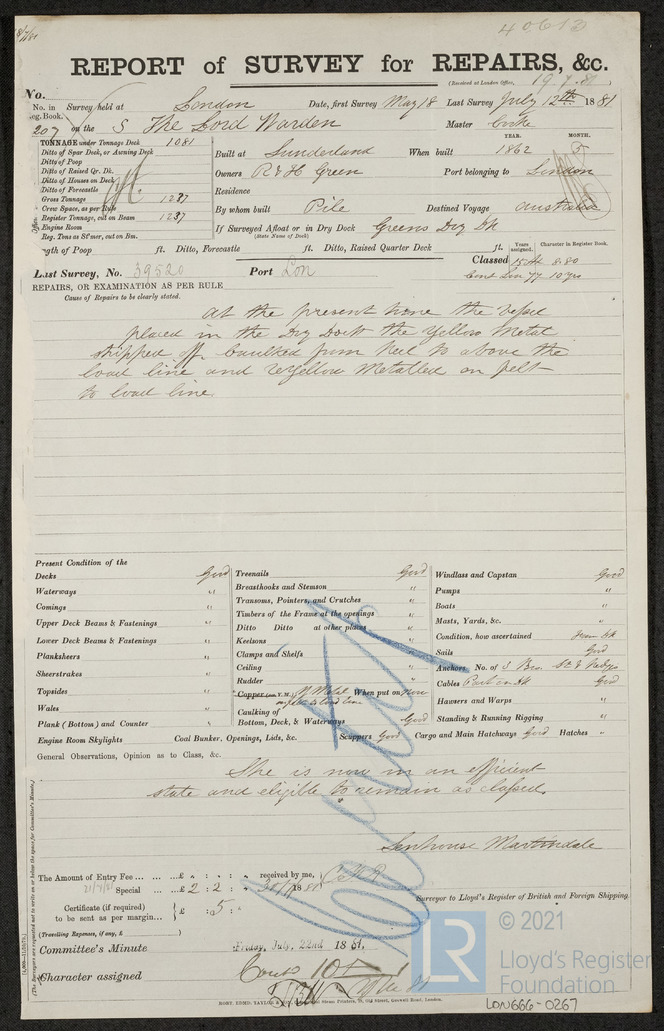 40613
REPORT of SURVEY for REPAIRS, &c.
(Received at London Office,
No.
Survey held at London Date, first Survey May 18 Last Survey July 12th 1881
No. in Reg. Book.
207 on the S The Lord Warden Master
TONNAGE under Tonnage Deck 1081
Ditto of Spar Deck, or Awning Deck
Ditto of Poop
Ditto of Raised Qr. Dk.
Ditto of Houses on Deck
Ditto of Forecastle
Gross Tonnage 1237
Crew Space, as per Rule
Register Tonnage, cut on Beam 1237
Engine Room
Reg. Tons as St'mer, cut on Bm.
Built at Sunderland When built YEAR. 1862 MONTH. 5
Owners R & H Green Port belonging to London
Residence
By whom built Pile Destined Voyage Australia
If Surveyed Afloat or in Dry Dock Greens Dry Dk
(State Name of Dock)
Length of Poop ft. Ditto, Forecastle ft. Ditto, Raised Quarter Deck ft.
Years assigned. Character in Register Book.
Classed 15 A 8.80
Cont Lon 77 10 yrs
Last Survey, No. 39520 Port Lon
REPAIRS, OR EXAMINATION AS PER RULE
Cause of Repairs to be clearly stated.
At the present time the Vessel
placed in the Dry Dock the Yellow Metal
stripped off, Caulked from keel to above the
load line and reyellow Metalled on felt
to load line.
Present Condition of the
Decks Good
Waterways "
Comings "
Upper Deck Beams & Fastenings "
Lower Deck Beams & Fastenings "
Planksheers "
Sheerstrakes "
Topsides "
Wales "
Plank (Bottom) and Counter "
Engine Room Skylights
Treenails Good
Breasthooks and Stemson "
Transoms, Pointers, and Crutches "
Timbers of the Frame at the openings "
Ditto Ditto at other places "
Keelsons "
Clamps and Shelfs "
Ceiling "
Rudder "
Copper (or Y.M.) Y Metal When put on Now
on felt to load line
Caulking of
Bottom, Deck, & Waterways Good
Windlass and Capstan Good
Pumps "
Boats "
Masts, Yards, &c. "
Condition, how ascertained From Dk
Sails Good
Anchors No. of 3 Bn St & Kedge
Cables Part in Dk Good
Hawsers and Warps "
Standing & Running Rigging "
Coal Bunker, Openings, Lids, &c. Scuppers Good Cargo and Main Hatchways Good Hatches "
General Observations, Opinion as to Class, &c.
She is now in an efficient
state and eligible to remain as classed.
Senhouse Martindale
Surveyor to Lloyd's Register of British and Foreign Shipping.
The Amount of Entry Fee ... £ : : received by me,
Special ... £ 2 : 2 : "
Certificate (if required) to be sent as per margin... £ : 5 :
(Travelling Expenses, if any, £ )
Committee's Minute Friday, July, 22nd 1881.
Character assigned
(The Surveyors are requested not to write on or below the space for Committee's Minute.)
© 2021
LR
Lloyd's Register
Foundation
LON666-0267